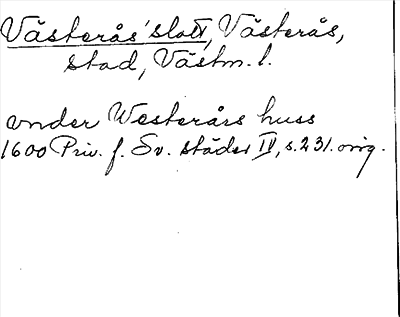 Västerås' slott, Västerås,
stad, Västm. l.
under Westerårs huss
1600 Priv. f. Sv. städer IV, s. 231. orig.